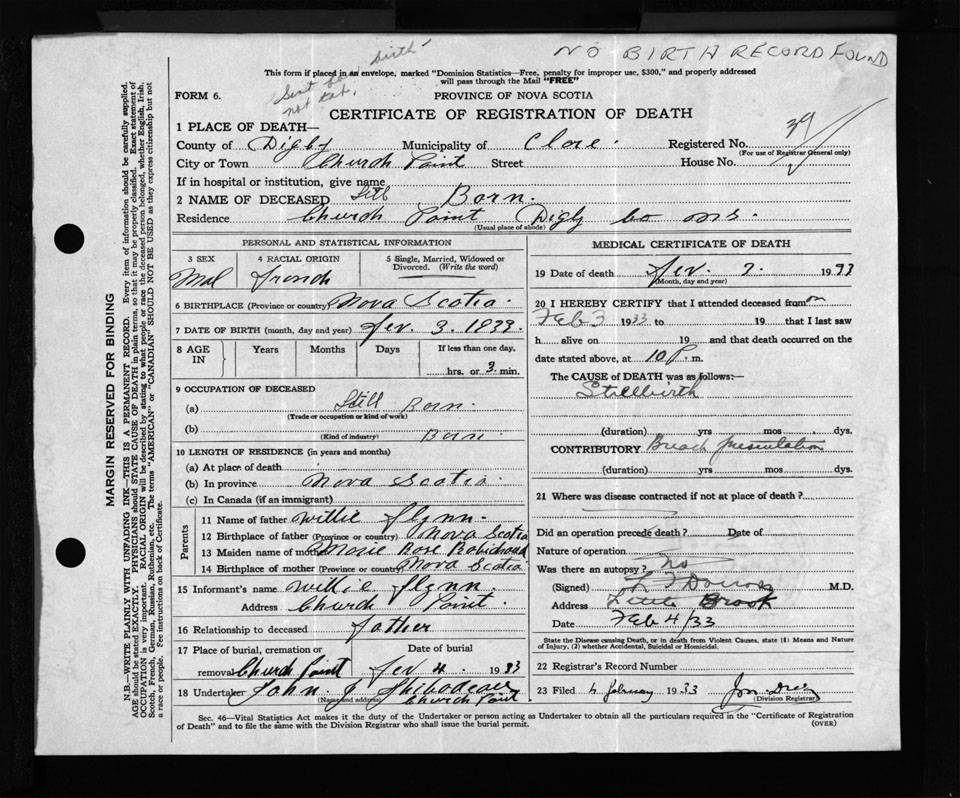 NO BIRTH RECORD FOUND
birth
This form if placed in an envelope, marked "Dominion Statistics—Free, penalty for improper use, $300," and properly addressed
will pass through the Mail "FREE"
Sent
not
FORM 6.
PROVINCE OF NOVA SCOTIA
CERTIFICATE OF REGISTRATION OF DEATH
39
1 PLACE OF DEATH—
County of Digby Municipality of Clare. Registered No.
(For use of Registrar General only)
City or Town Church Point Street House No.
If in hospital or institution, give name
2 NAME OF DECEASED Still Born.
Residence Church Point Digby Co
(Usual place of abode)
PERSONAL AND STATISTICAL INFORMATION
3 SEX 4 RACIAL ORIGIN 5 Single, Married, Widowed or
Divorced. (Write the word)
Mal French
6 BIRTHPLACE (Province or country) Nova Scotia.
7 DATE OF BIRTH (month, day and year) Fev. 3. 1933.
8 AGE IN Years Months Days If less than one day,
hrs. or 3 min.
9 OCCUPATION OF DECEASED
(a) Still Born.
(Trade or occupation or kind of work)
(b) Born.
(Kind of industry)
10 LENGTH OF RESIDENCE (in years and months)
(a) At place of death
(b) In province Nova Scotia.
(c) In Canada (if an immigrant)
Parents
11 Name of father Willie Flynn.
12 Birthplace of father (Province or country) Nova Scotia
13 Maiden name of mother Marie Rose Robichaud
14 Birthplace of mother (Province or country) Nova Scotia
15 Informant's name Willie Flynn
Address Church Point.
16 Relationship to deceased father
17 Place of burial, cremation or Date of burial
removal Church Point Fev 4. 1933
18 Undertaker John J Thibodeau
(Name and address) Church Point
MEDICAL CERTIFICATE OF DEATH
19 Date of death Fev. 3. 1933
(Month, day and year)
20 I HEREBY CERTIFY that I attended deceased from on
Feb 3 1933 to 19 that I last saw
h alive on 19 and that death occurred on the
date stated above, at 10 P. m.
The CAUSE of DEATH was as follows:—
Stillbirth
(duration) yrs mos. dys.
CONTRIBUTORY Breach presentation
(duration) yrs. mos. dys.
21 Where was disease contracted if not at place of death?
Did an operation precede death? Date of
Nature of operation
Was there an autopsy? No
(Signed) M.D.
Address Little Brook
Date Feb 4/33
State the Disease causing Death, or in death from Violent Causes, state (1) Means and Nature
of Injury, (2) whether Accidental, Suicidal or Homicidal.
22 Registrar's Record Number
23 Filed 4 february 1933
(Division Registrar)
Sec. 46—Vital Statistics Act makes it the duty of the Undertaker or person acting as Undertaker to obtain all the particulars required in the "Certificate of Registration
of Death" and to file the same with the Division Registrar who shall issue the burial permit.
(OVER)
MARGIN RESERVED FOR BINDING
N.B.—WRITE PLAINLY WITH UNFADING INK—THIS IS A PERMANENT RECORD. Every item of information should be carefully supplied.
AGE should be stated EXACTLY. PHYSICIANS should STATE CAUSE OF DEATH in plain terms, so that it may be properly classified. Exact statement of
OCCUPATION is very important. RACIAL ORIGIN will be described by stating to what people or race the deceased person belonged, whether English, Irish,
Scotch, French, German, Russian, Ruthenian, etc. The terms "AMERICAN" or "CANADIAN" SHOULD NOT BE USED as they express citizenship but not
a race or people. Fee instructions on back of Certificate.